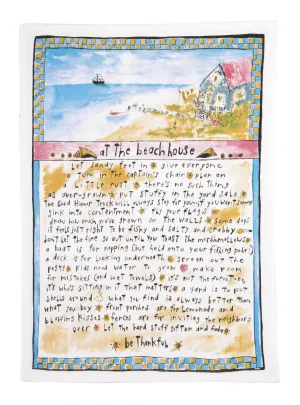 at the beach house
Let sandy feet in give everyone
a turn in the captain's chair plan on
a little rust there's no such thing
as over-grown put stuffy in the yard sale
the Good Humor truck will always stop for you if you want
sink into contentment fly your flags
draw how you've grown on the walls some days
it feels just right to be fishy and salty and crabby
don't let the fire go out until you toast the marshmallows
a boat is for napping (but hold onto your fishing pole!)
a deck is for looking underneath screen out the
pests kids need water to grow make room
for mistakes (and wet towels) it's not the furniture,
it's who's sitting in it that matters a yard is to put
shells around what you find is always better than
what you buy front porches are for lemonade and
blowing kisses fences are for inviting the neighbors
over Let the hard stuff soften and fade
be thankful